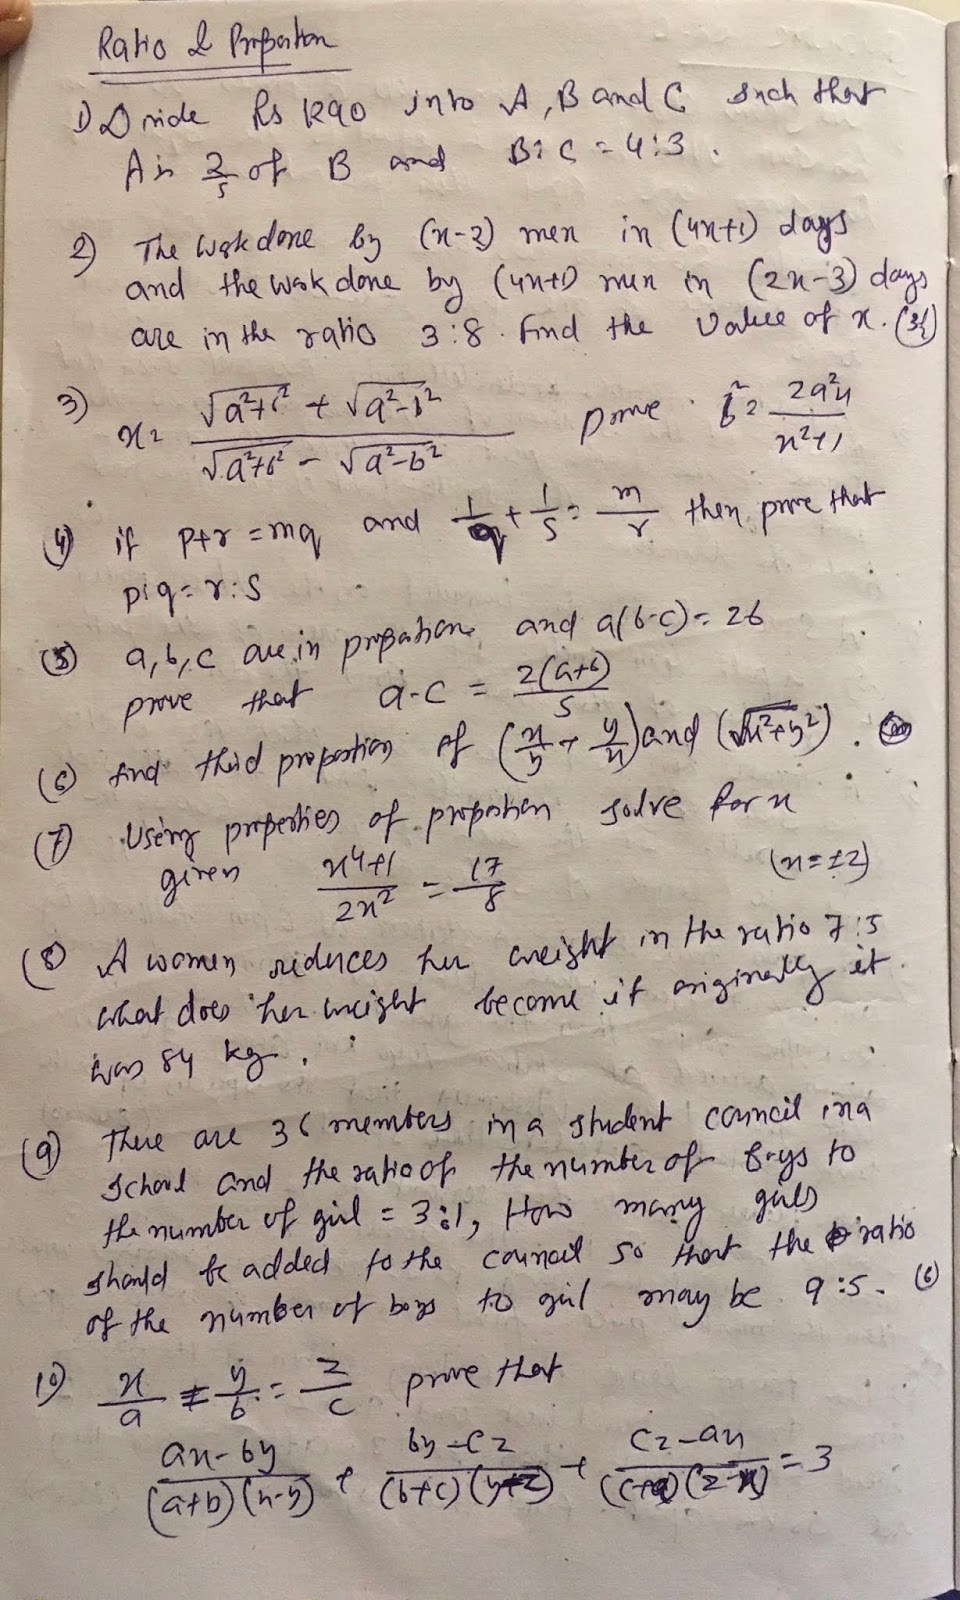 Ratio & Proportion
1) Divide Rs 1290 into A, B and C such that
A is 2/5 of B and B:C = 4:3.
2) The work done by (x-2) men in (4x+1) days
and the work done by (4x+1) men in (2x-3) days
are in the ratio 3:8. Find the value of x.
3) x = (√a²+b² + √a²-b²) / (√a²+b² - √a²-b²) prove b² = 2a²x / x²+1
(4) if p+r = mq and 1/q + 1/s = m/r then prove that
p:q = r:s
(5) a, b, c are in proportion and a(b-c) = 2b
prove that a-c = 2(a+b) / 5
(6) find third proportion of (x/y + y/x) and (√x²+y²).
(7) Using properties of proportion solve for x
given x⁴+1 / 2x² = 17/8 (x = ±2)
(8) A women reduces her weight in the ratio 7:5
what does her weight become if originally it
was 84 kg.
(9) There are 36 members in a student council in a
school and the ratio of the number of boys to
the number of girl = 3:1, How many girls
should be added to the council so that the ratio
of the number of boys to girl may be 9:5. (6)
10) x/a = y/b = z/c prove that
ax-by / (a+b)(x-y) + by-cz / (b+c)(y-z) + cz-ax / (c+a)(z-x) = 3